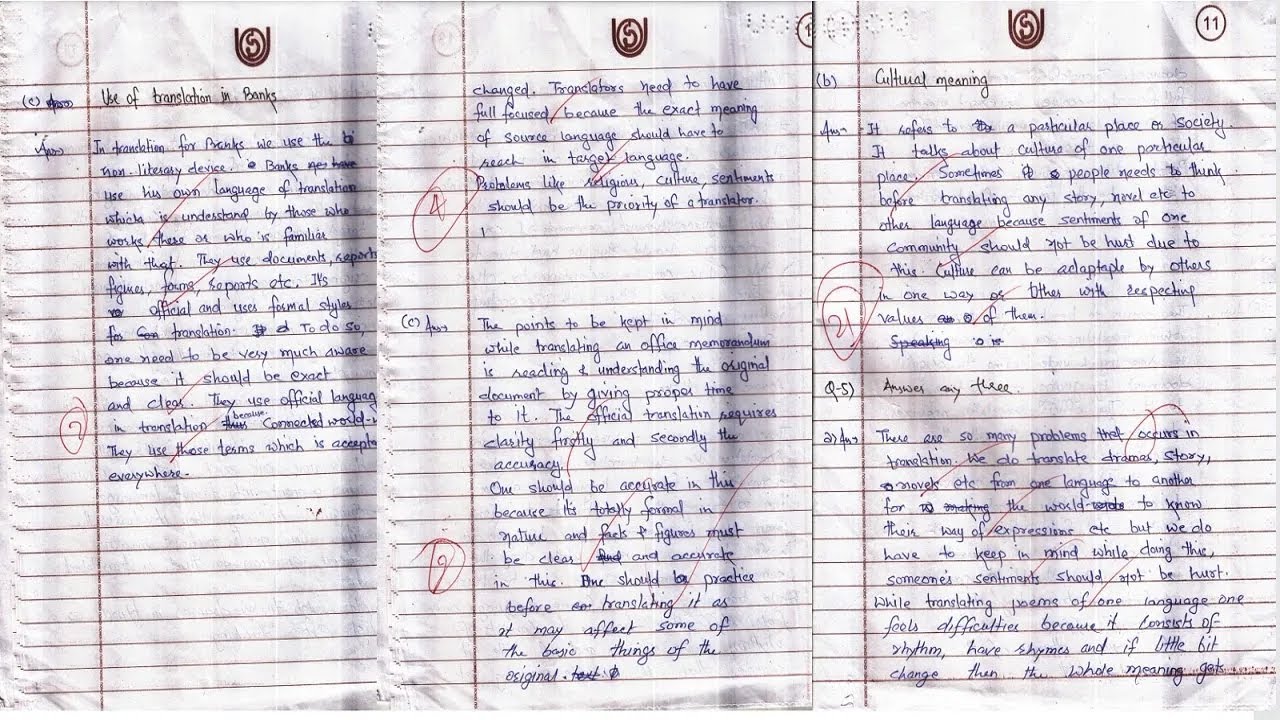 (e) Ans)
Use of translation in Banks
Ans)
In translation for Banks we use the
non-literary device. Banks
use his own language of translation
which is understand by those who
works there or who is familiar
with that. They use documents, reports
figures, forms, reports etc. It's
official and uses formal styles
for translation. To do so,
one need to be very much aware
because it should be exact
and clear. They use official languag
in translation because connected world
They use those terms which is accepta
everywhere.
1
changed. Translators need to have
full focused, because the exact meaning
of source language should have to
reach in target language.
Problems like religious, culture, sentiments
should be the priority of a translator.
4
(c) Ans
The points to be kept in mind
while translating an office memorandum
is reading & understanding the original
document by giving proper time
to it. The official translation requires
clarity firstly and secondly the
accuracy.
One should be accurate in this
because its totally formal in
nature and facts & figures must
be clear and accurate
in this. One should practice
before translating it as
it may affect some of
the basic things of the
original.
11
(b) Cultural meaning
Ans- It refers to a particular place or society.
It talks about culture of one particular
place. Sometimes people needs to think
before translating any story, novel etc to
other language because sentiments of one
community should not be hurt due to
this. Culture can be adaptaple by others
in one way or other with respecting
values of them.
Speaking
Q-5) Answer any three.
a) Ans- There are so many problems that occurs in
translation. We do translate dramas, story,
novels etc from one language to another
for the world to know
their way of expressions etc but we do
have to keep in mind while doing this,
someone's sentiments should not be hurt.
While translating poems of one language one
feels difficulties because it consists of
rhythm, have rhymes and if little bit
change then the whole meaning gets